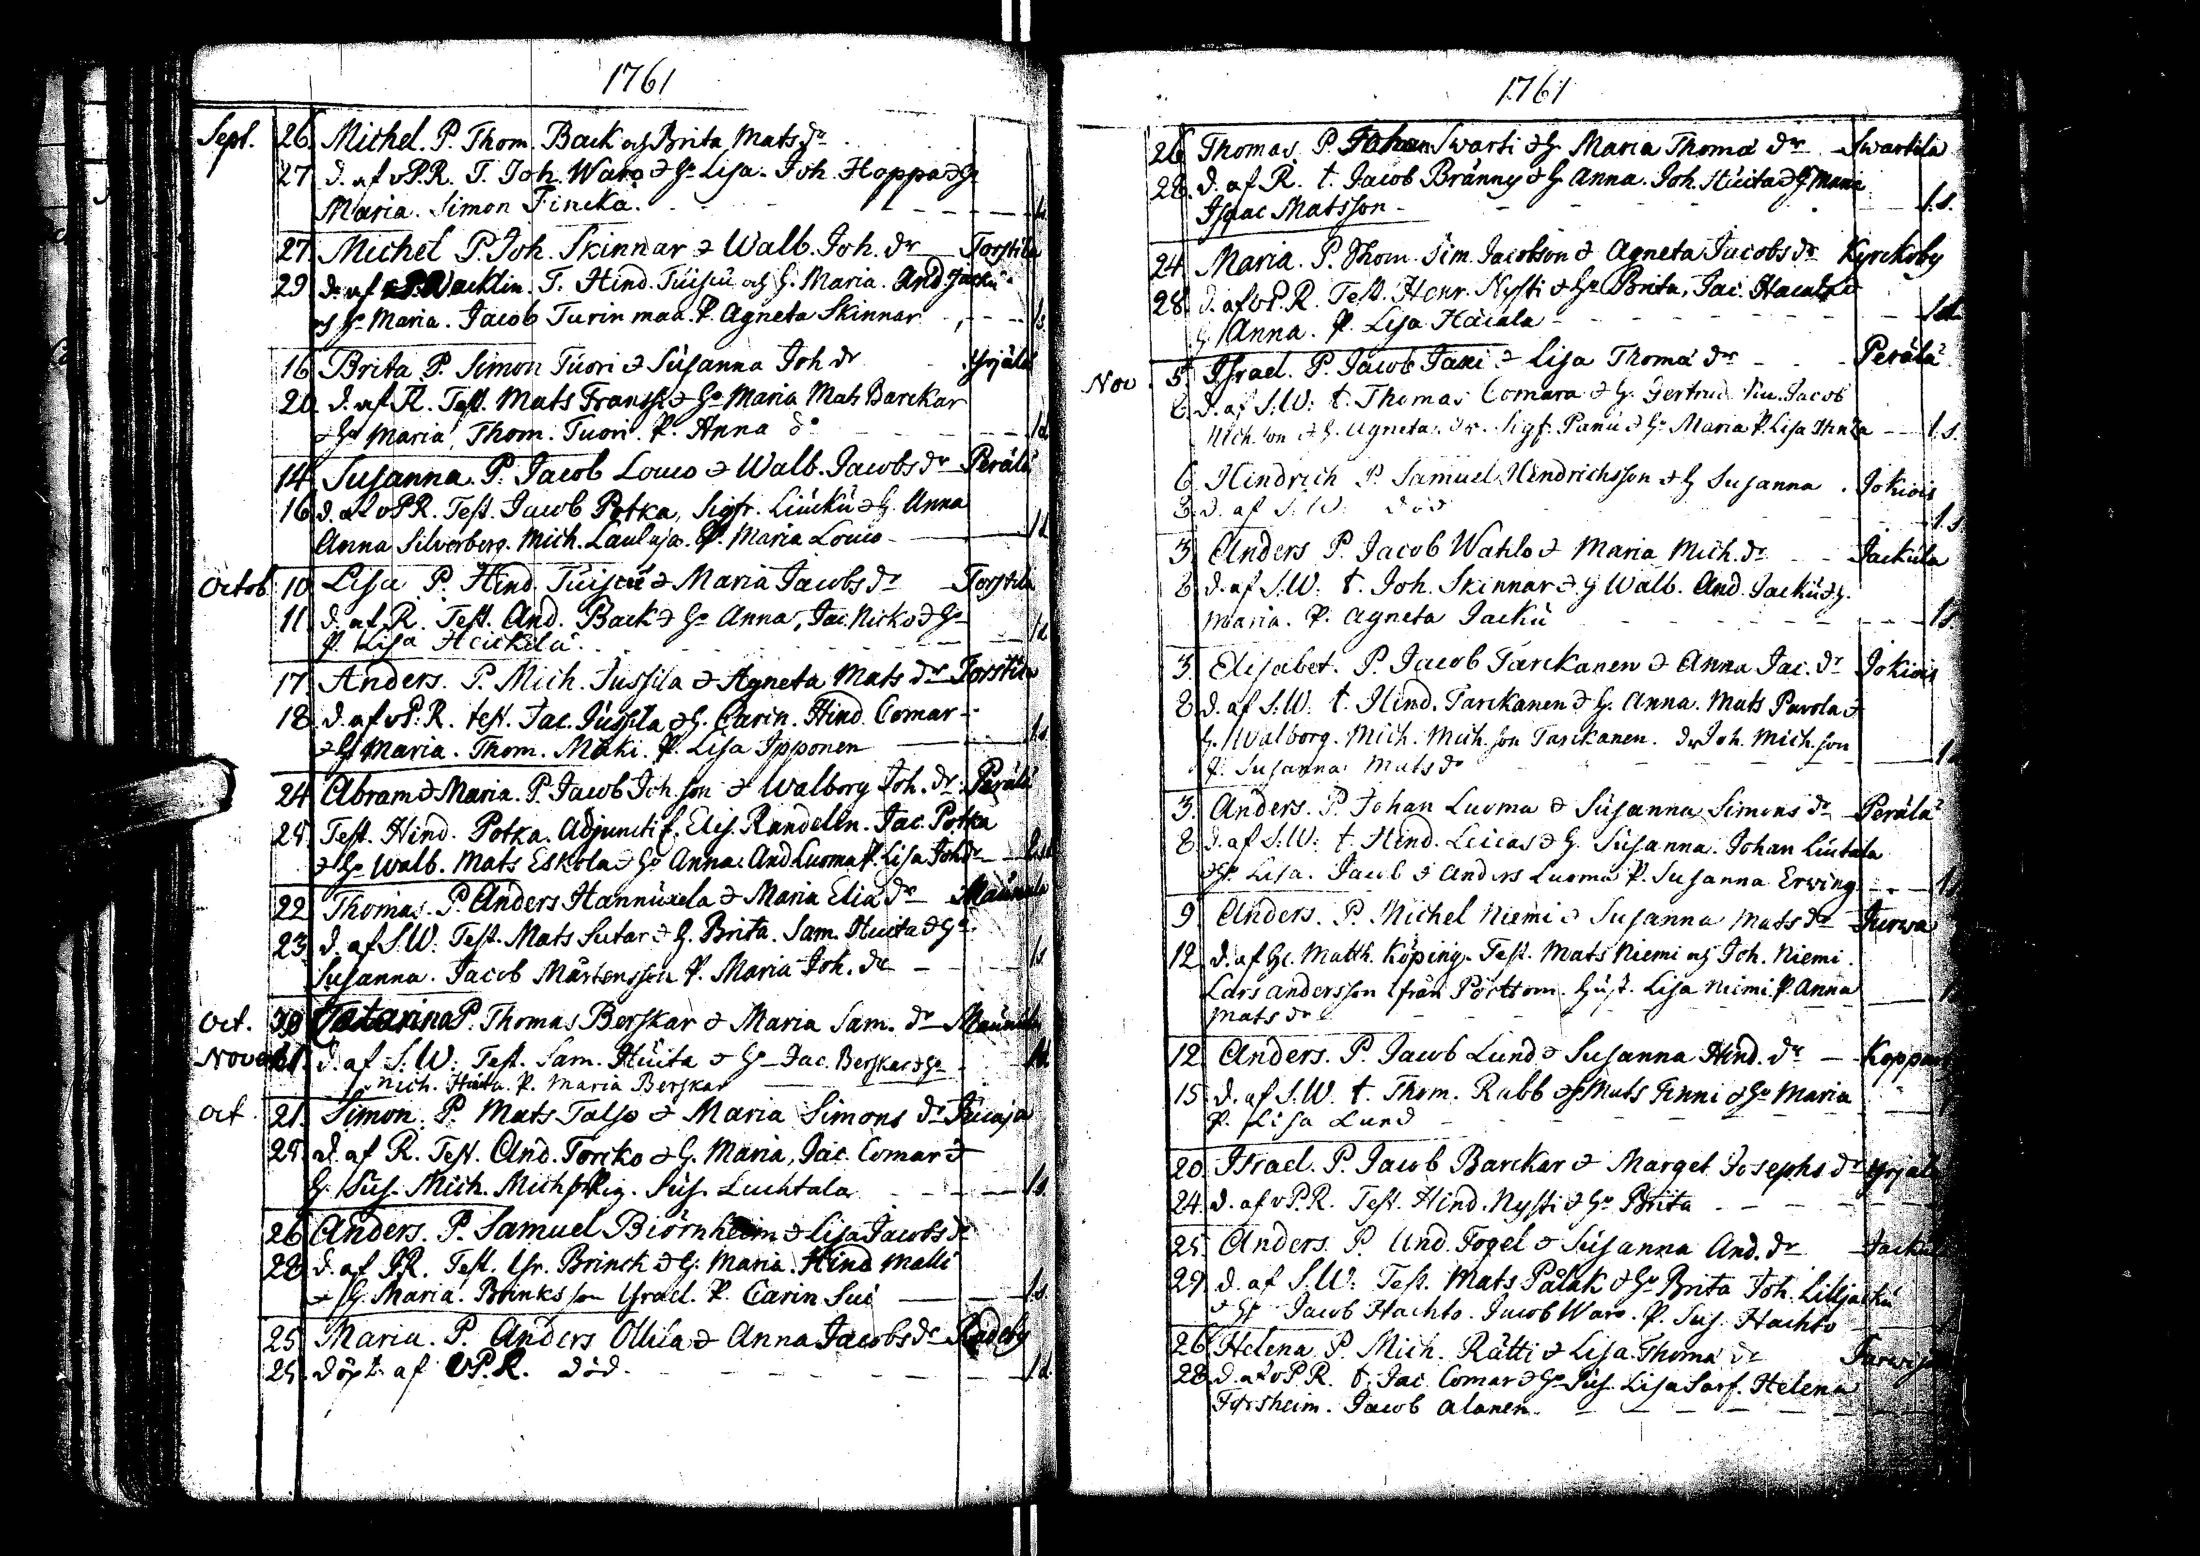 1761
Sept. 26. Michel. P. Thom. Back och Brita Mats dr
27 d. af vP.R. T. Joh. Waro & Hu Lisa. Joh. Hoppa & Hu
Maria. Simon Fincka. 1s.
27. Michel P. Joh. Skinnar & Walb. Joh. dr Torstila
29 d. af Wacklin. T. Hind. Tuiscu och H. Maria. And. Jacku
och Hu Maria. Jacob Turinmaa. P. Agneta Skinnar 1s.
16 Brita P. Simon Tuori & Susanna Joh dr Yrjälä
20 d. af R. Test. Mats Franss & Hu Maria Mats Barckar
& Hu Maria, Thom. Tuori. P. Anna do 1d
14. Susanna. P. Jacob Louco & Walb. Jacobs dr Perälä
16 d. af vPR. Test. Jacob Potka, Sigfr. Liuku & H. Anna
Anna Silverberg. Mich. Laulaja. P. Maria Louco 1d
Octob. 10. Lisa P. Hind. Tuiscu & Maria Jacobs dr Torstila
11. d. af R. Test. And. Back & Hu Anna, Jac. Nisko & Hu
P. Lisa Heickilä. 1d.
17. Anders. P. Mich. Jussila & Agneta Mats dr Torstila
18. d. af vP.R. test. Jac. Jussila & H. Carin. Hind. Comar
& H Maria. Thom. Mäki. P. Lisa Ipponen 1s.
24 Abram & Maria. P. Jacob Joh. son & Walborg Joh. dr. Perälä
25 Test. Hind. Potka. Adjuncti f. Elis. Randelin. Jac. Potka
& Hu Walb. Mats Eskola & Hu Anna. And Luoma P. Lisa Joh dr
22. Thomas. P. Anders Hannuxela & Maria Elia dr Maunula
23 d. af S.W. Test. Mats Sutar & H. Brita. Sam. Huita & Hu
Susanna. Jacob Mårtensson P. Maria Joh. dr 1s.
Oct. 30 Catarina P. Thomas Berskar & Maria Sam. dr Maunula
Novemb 1. d. af S.W. Test. Sam. Huita & Hu Jac. Berskar & Hu 1d.
Mich. Huita. P. Maria Berskar
Oct. 21. Simon. P. Mats Talso & Maria Simons dr
25. d. af R. Test. And. Torcko & H. Maria, Jac. Comar &
H. Sus. Mich. Michss Pig. Sus. Luchtala 1s.
26 Anders. P. Samuel Biörnheim & Lisa Jacobs dr
28 d. af P.R. Test. Yr. Brinck & H. Maria. Hind Malli
& H. Maria. Brinks son Israel. P. Carin Sui 1s.
25 Maria. P. Anders Ollila & Anna Jacobs dr
25. döpt. af vP.R. död. 1d.
1761
26 Thomas. P. Johan Swarti & H. Maria Thoma dr Swartila
28. d. af R. t. Jacob Bränny & H Anna. Joh. Huita & H Maria
Isaac Matsson 1.s.
24 Maria. P. Thom. Sim. Jacobson & Agneta Jacobs dr Kyrckoby
28. d. af vP.R. Test. Henr. Nysti & Hu Brita, Jac. Hacala &
H Anna. P. Lisa Hacala 1d.
Nov. 5. Israel. P. Jacob Jaxi & Lisa Thoma dr Perälä
6. d. af S.W. t. Thomas Comara & H. Gertrud. Jacob
Mich. son & H. Agneta. dr. Sigf. Panu & Hu Maria P. Lisa 1.s.
6 Hindrich P. Samuel Hindrichsson & H Susanna. Jokiois
8. d. af S.W. död 1.s.
3. Anders P. Jacob Wahlo & Maria Mich. dr Jackula
8. d. af S.W. t. Joh. Skinnar & H Walb. And. Jacku & H.
Maria. P. Agneta Jacku 1s.
3. Elisabet. P. Jacob Tarckanen & Anna Jac. dr Jokiois
8 d. af S.W. t. Hind. Tarckanen & H. Anna. Mats Pavola &
H. Walborg. Mich. Mich. son Tarckanen. dr Joh. Mich. son
P. Susanna Mats dr 1d
3. Anders. P. Johan Luoma & Susanna Simons dr Perälä
8 d. af S.W. t. Hind. Leicas & H. Susanna. Johan Liutala
& Hu Lisa. Jacob & Anders Luoma P. Susanna Erving 1s
9 Anders. P. Michel Niemi & Susanna Mats dr Jurva
12. d. af Hr. Matth. Köping. Test. Mats Niemi och Joh. Niemi.
Lars Andersson ifrån Pörttom. Hust. Lisa Niemi. P. Anna
Mats dr
12 Anders. P. Jacob Lund & Susanna Hind. dr
15 d. af S.W. t. Thom. Rabb & H Mats Finni & Hu Maria
P. Lisa Lund
20 Israel. P. Jacob Barckar & Marget Josephs dr
24 d. af vP.R. Test. Hind. Nysti & Hu Brita
25 Anders P. And. Fogel & Susanna And. dr
29 d. af S.W. Test. Mats Pålak & Hu Brita Joh. Liljacku
& Hu Jacob Hachto. Jacob Waro. P. Sus. Hachto
26 Helena P. Mich. Rätti & Lisa Thoma dr
28 d. af vP.R. t. Jac. Comar & Hu Sus. Lisa Sarf. Helena
Forsheim. Jacob Alanen.